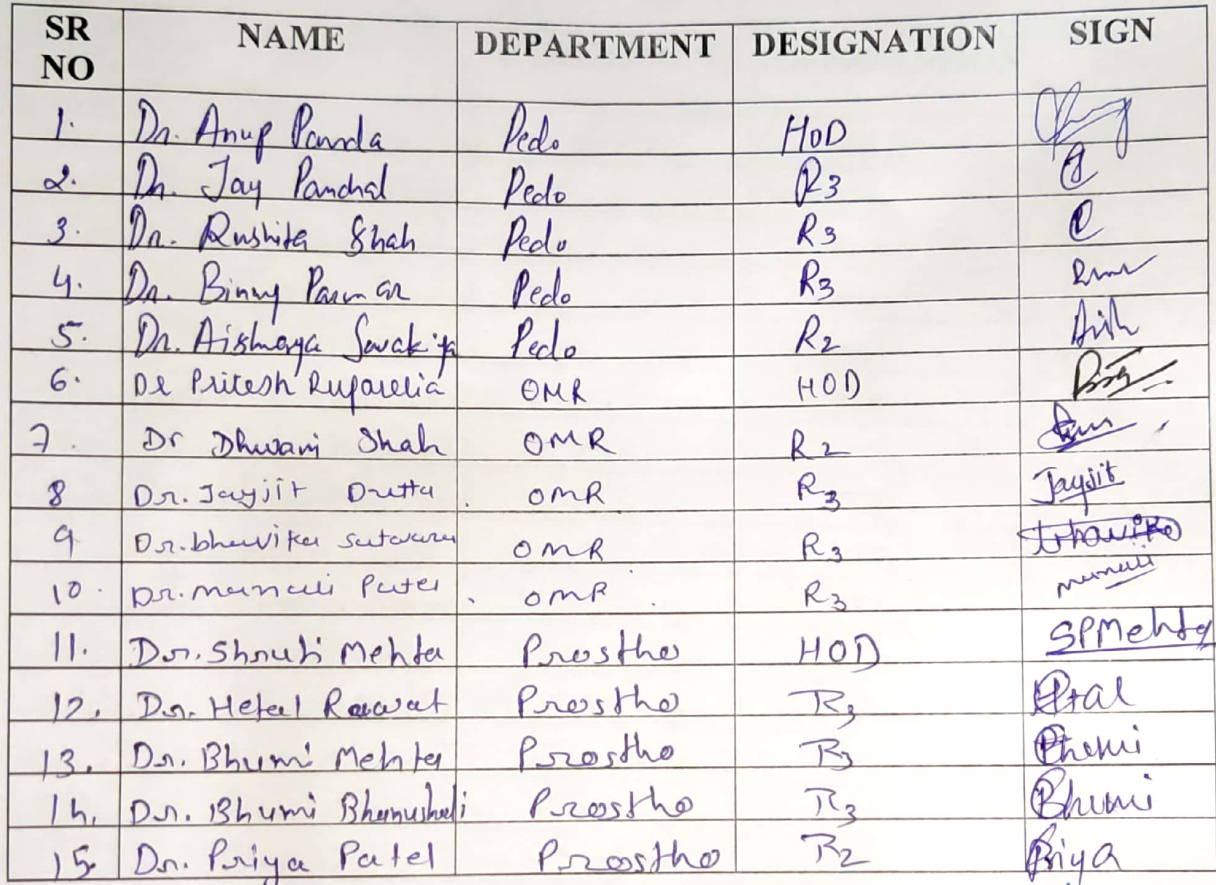 SR NO NAME DEPARTMENT DESIGNATION SIGN
1. Dr. Anup Panda Pedo HoD
2. Dr. Jay Panchal Pedo R3
3. Dr. Rushita Shah Pedo R3
4. Dr. Binny Parmar Pedo R3
5. Dr. Aishwarya Savakiya Pedo R2
6. Dr Pritesh Ruparelia OMR HOD
7. Dr Dhwani Shah OMR R2
8 Dr. Jayjit Dutta OMR R3 Jayjit
9 Dr. bhavika OMR R3 bhavika
10. Dr. manali Patel OMR R3 manali
11. Dr. Shruti Mehta Prostho HOD SPMehta
12. Dr. Hetal Rawat Prostho R3 Hetal
13. Dr. Bhumi Mehta Prostho R3 Bhumi
14. Dr. Bhumi Bhanushali Prostho R3 Bhumi
15. Dr. Priya Patel Prostho R2 Priya